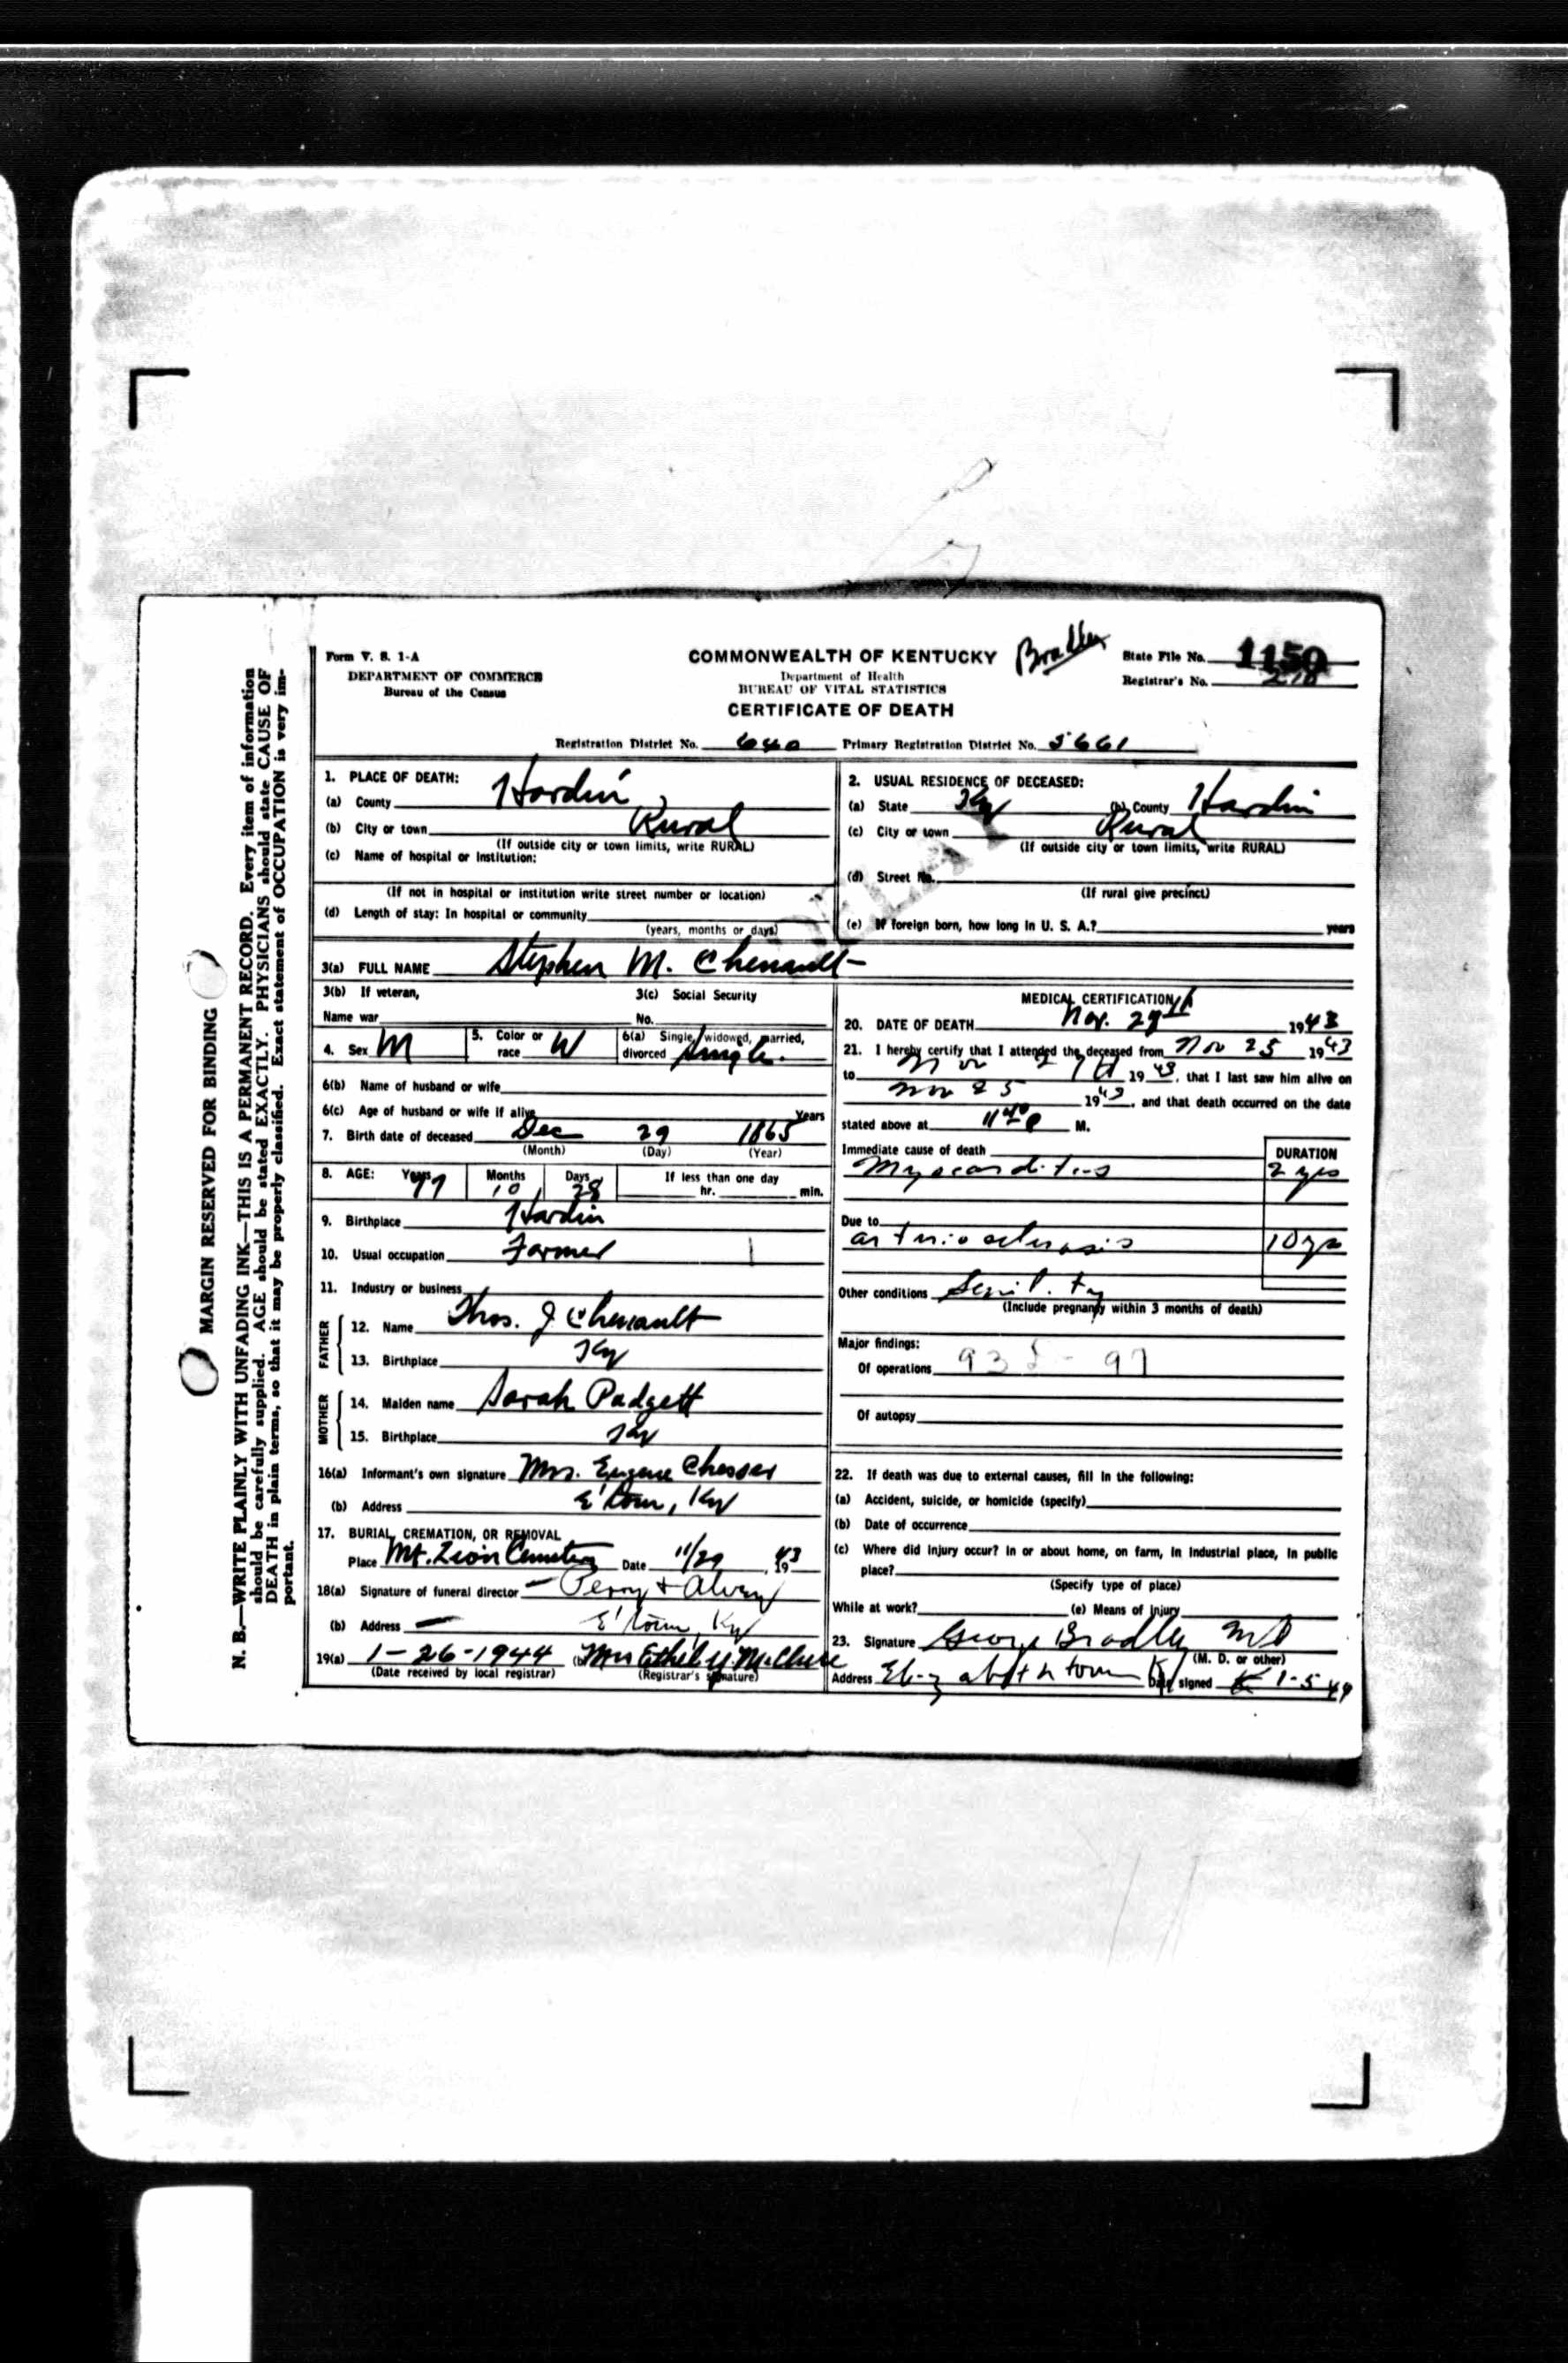 MARGIN RESERVED FOR BINDING
N. B.—WRITE PLAINLY WITH UNFADING INK—THIS IS A PERMANENT RECORD. Every item of information
should be carefully supplied. AGE should be stated EXACTLY. PHYSICIANS should state CAUSE OF
DEATH in plain terms, so that it may be properly classified. Exact statement of OCCUPATION is very im-
portant.
Form V. S. 1-A
DEPARTMENT OF COMMERCE
Bureau of the Census
COMMONWEALTH OF KENTUCKY
Department of Health
BUREAU OF VITAL STATISTICS
CERTIFICATE OF DEATH
Bradley
State File No. 1150
Registrar's No. 210
Registration District No. 640 Primary Registration District No. 5661
1. PLACE OF DEATH:
(a) County Hardin
(b) City or town Rural
(If outside city or town limits, write RURAL)
(c) Name of hospital or Institution:
(If not in hospital or institution write street number or location)
(d) Length of stay: In hospital or community
(years, months or days)
2. USUAL RESIDENCE OF DECEASED:
(a) State Ky (b) County Hardin
(c) City or town Rural
(If outside city or town limits, write RURAL)
(d) Street No.
(If rural give precinct)
(e) If foreign born, how long in U. S. A.? years
3(a) FULL NAME Stephen M. Chenault
3(b) If veteran,
Name war
3(c) Social Security
No.
4. Sex M
5. Color or race W
6(a) Single, widowed, married, divorced Single.
6(b) Name of husband or wife
6(c) Age of husband or wife if alive Years
7. Birth date of deceased Dec 29 1865
(Month) (Day) (Year)
8. AGE: Years 77 Months 10 Days 28 If less than one day
hr. min.
9. Birthplace Hardin
10. Usual occupation Farmer
11. Industry or business
FATHER
12. Name Thos. J Chenault
13. Birthplace Ky
MOTHER
14. Maiden name Sarah Padgett
15. Birthplace Ky
16(a) Informant's own signature Mrs. Eugene Chesser
(b) Address E'town, Ky
17. BURIAL, CREMATION, OR REMOVAL
Place Mt. Zion Cemetery Date 11/29 1943
18(a) Signature of funeral director Perry & Alvey
(b) Address E'town, Ky
19(a) 1-26-1944 (b) Mrs Ethel McClure
(Date received by local registrar) (Registrar's signature)
MEDICAL CERTIFICATION
20. DATE OF DEATH Nov. 1943
21. I hereby certify that I attended the deceased from Nov 25 1943
to Nov 1943, that I last saw him alive on
Nov 25 1943, and that death occurred on the date
stated above at 11 40 P M.
Immediate cause of death DURATION
Myocarditis 2 yrs
Due to
arteriosclerosis 10 yrs
Other conditions Senility
(Include pregnancy within 3 months of death)
Major findings:
Of operations 93 - 97
Of autopsy
22. If death was due to external causes, fill in the following:
(a) Accident, suicide, or homicide (specify)
(b) Date of occurrence
(c) Where did injury occur? In or about home, on farm, in industrial place, in public
place?
(Specify type of place)
While at work? (e) Means of Injury
23. Signature George Bradley MD
(M. D. or other)
Address Elizabethtown Ky Date signed 1-5-44